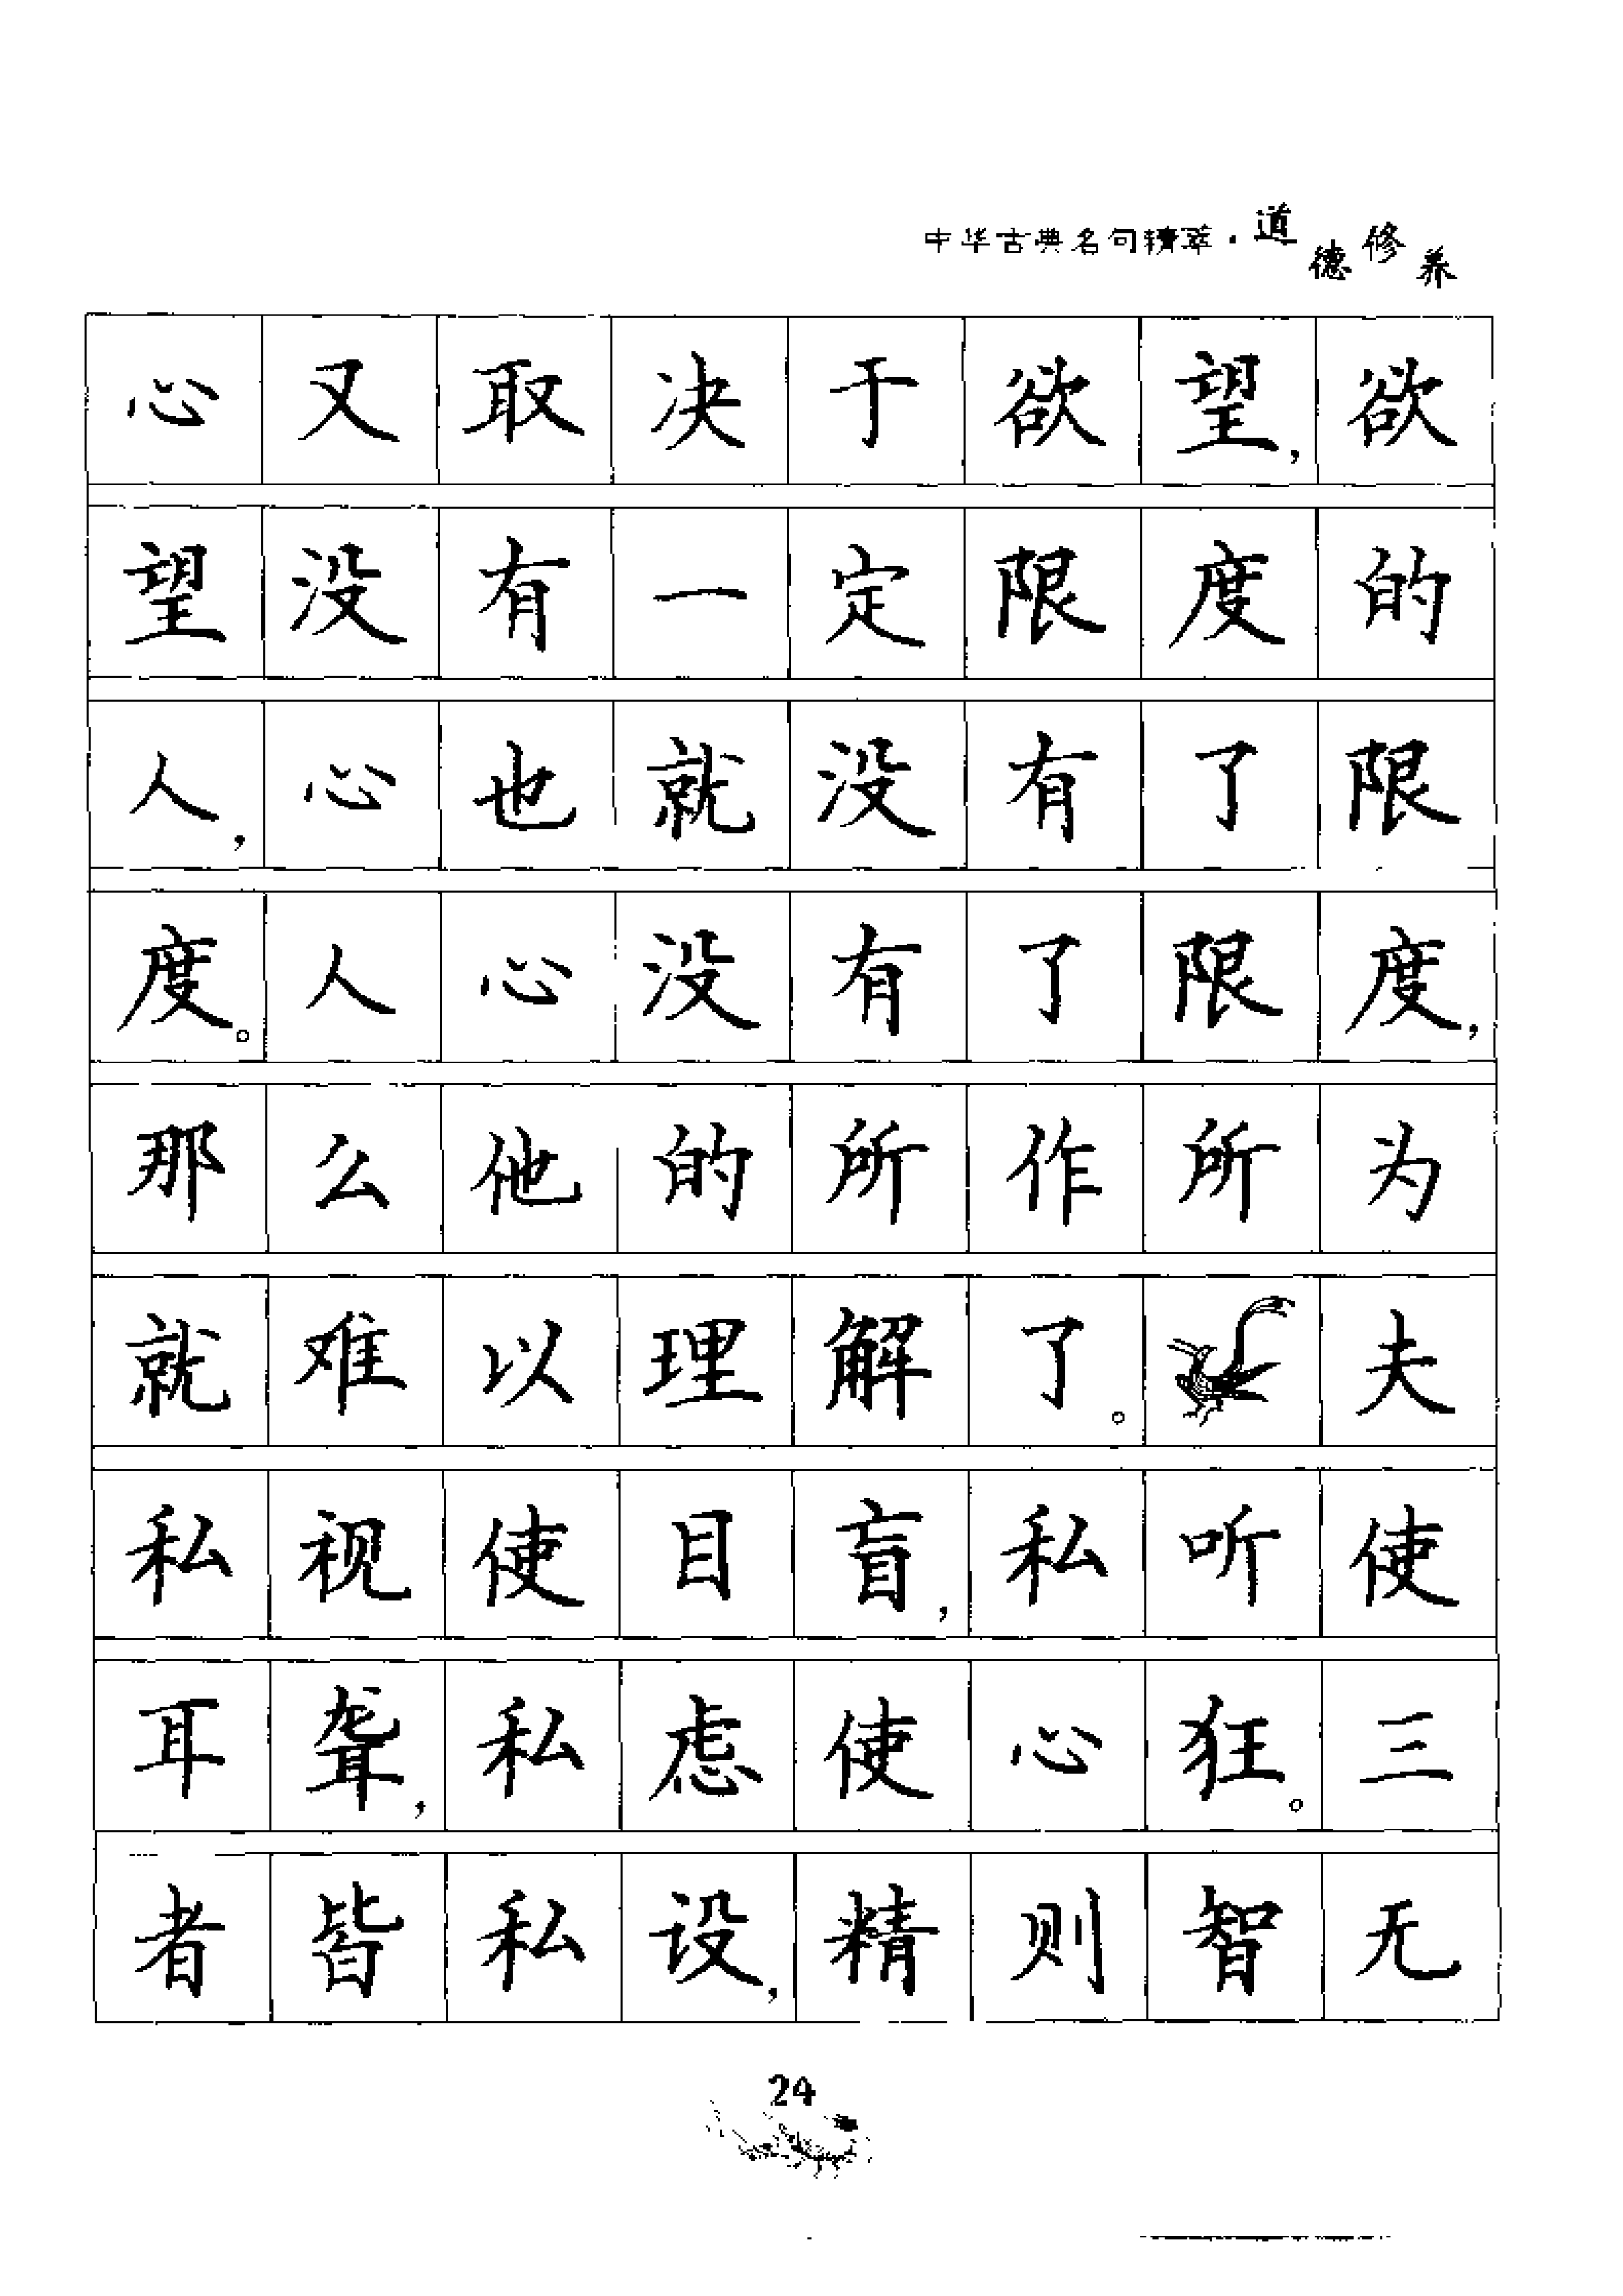 中华古典名句精萃·道德修养
心又取决于欲望，欲
望没有一定限度的
人，心也就没有了限
度。人心没有了限度，
那么他的所作所为
就难以理解了。夫
私视使目盲，私听使
耳聋，私虑使心狂。三
者皆私设，精则智无
24